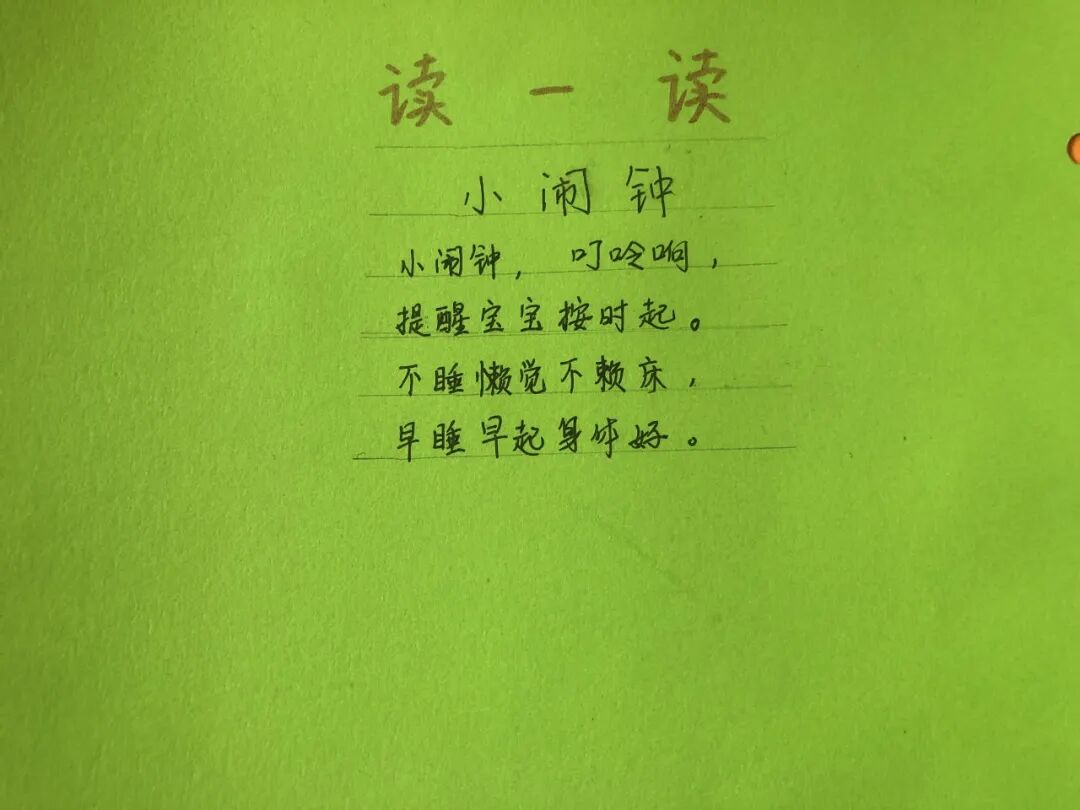 读一读
小闹钟
小闹钟，叮呤响，
提醒宝宝按时起。
不睡懒觉不赖床，
早睡早起身体好。